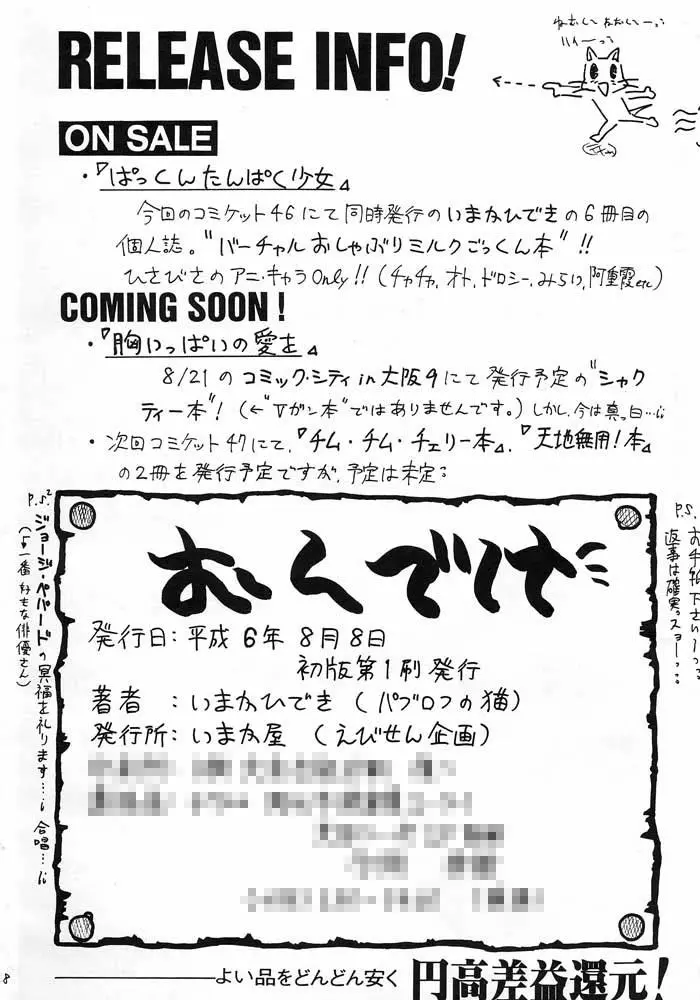 RELEASE INFO!
ON SALE
・『ぱっくんたんぱく少女』
今回のコミケット46にて同時発行のいまかひできの6冊目の
個人誌。“バーチャルおしゃぶりミルクごっくん本”!!
ひさびさのアニ・キャラOnly!!(チャチャ,オト,ドロシー,みらい,阿重霞etc)
COMING SOON!
・『胸いっぱいの愛を』
8/21のコミック・シティin大阪9にて発行予定の“シャク
ティー本”!(←“Vガン本”ではありませんです。)しかし、今は真っ白…
・次回コミケット47にて、『チム・チム・チェリー本』、『天地無用!本』
の2冊を発行予定ですが、予定は未定
P.S.
お手紙下さいーっ
返事は確実っスョーっ
P.S.²
ジョージ・ペパードの冥福を祈ります… 合唱…
(一番好きな俳優さん)
おくづけ
発行日:平成6年8月8日
初版第1刷発行
著者 :いまかひでき(パブロフの猫)
発行所:いまか屋 (えびせん企画)
よい品をどんどん安く 円高差益還元!
8